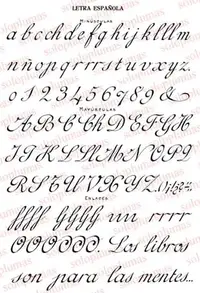 LETRA ESPAÑOLA
MINÚSCULAS
a b c ch d e f g h i j k l ll m
n ñ o p q r rr s t u v x y z.
0 1 2 3 4 5 6 7 8 9 &
MAYÚSCULAS
A B C Ch D E F G H
I J K L Ll M N O P Q
R S T U V X Y Z.
ENLACES
ffff gggg uu rrrr
OOOOOO. Los libros
son para las mentes...